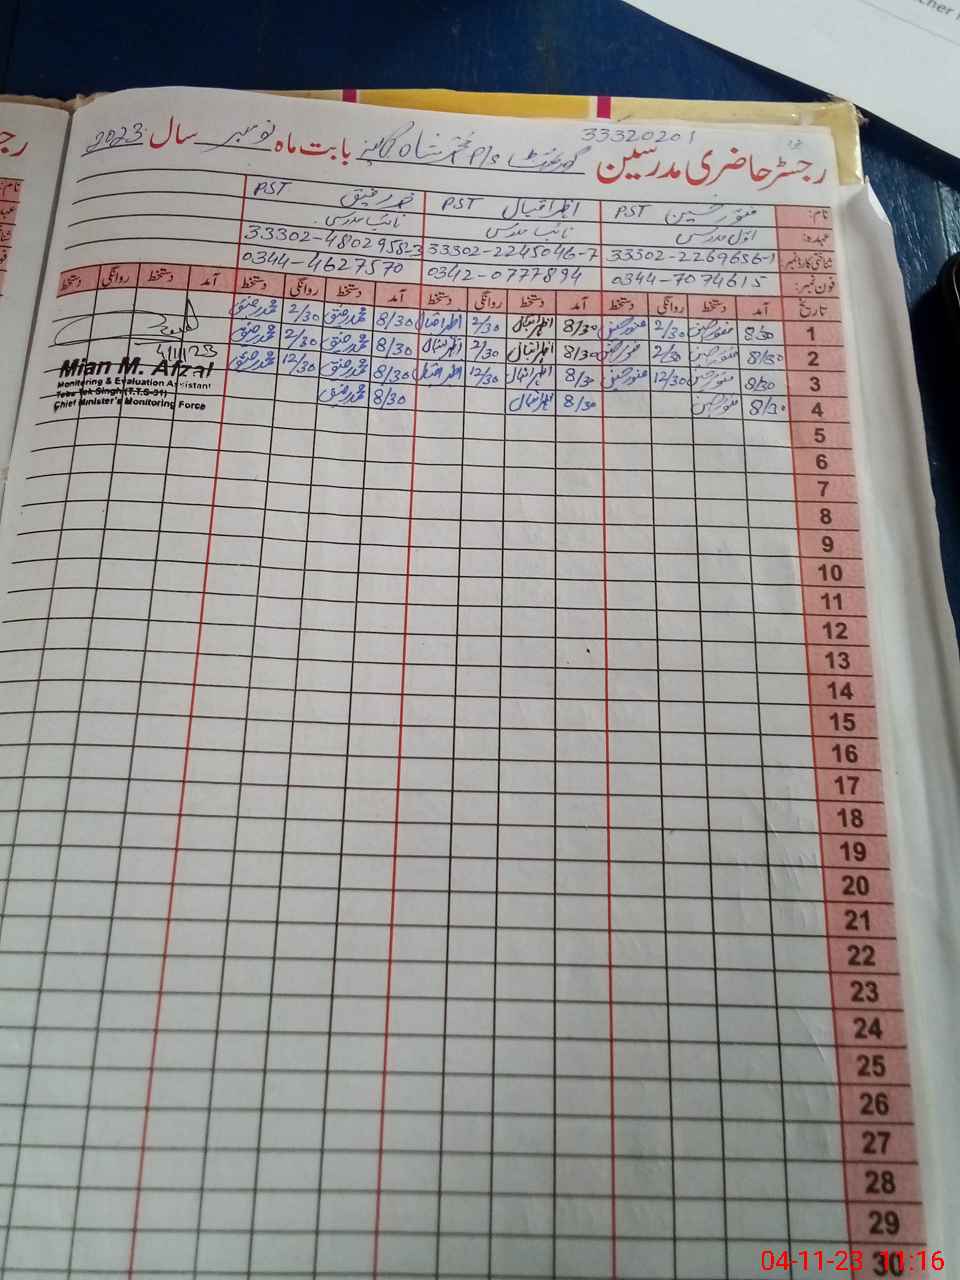 33320201
رجسٹر حاضری مدرسین گورنمنٹ P/S محمد شاہ بابت ماہ نومبر سال 2023
نام: منور حسین PST اظہر اقبال PST محمد رفیق PST
عہدہ: اول مدرس نائب مدرس نائب مدرس
شناختی کارڈ نمبر: 33302-2269656-1 33302-2245046-7 33302-4802958-3
فون نمبر: 0344-7074615 0342-0777894 0344-4627570
تاریخ آمد دستخط روانگی دستخط آمد دستخط روانگی دستخط آمد دستخط روانگی دستخط آمد دستخط روانگی دستخط
1 8/30 منور حسین 2/30 منور حسین 8/30 اظہر اقبال 2/30 اظہر اقبال 8/30 محمد رفیق 2/30 محمد رفیق
2 8/30 منور حسین 2/30 منور حسین 8/30 اظہر اقبال 2/30 اظہر اقبال 8/30 محمد رفیق 2/30 محمد رفیق
3 8/30 منور حسین 12/30 منور حسین 8/30 اظہر اقبال 12/30 اظہر اقبال 8/30 محمد رفیق 12/30 محمد رفیق
4 8/30 منور حسین 8/30 اظہر اقبال 8/30 محمد رفیق
4/11/23
Mian M. Afzal
Monitoring & Evaluation Assistant
Toba Tek Singh (T.T.S-31)
Chief Minister's Monitoring Force
5
6
7
8
9
10
11
12
13
14
15
16
17
18
19
20
21
22
23
24
25
26
27
28
29
30
04-11-23 11:16